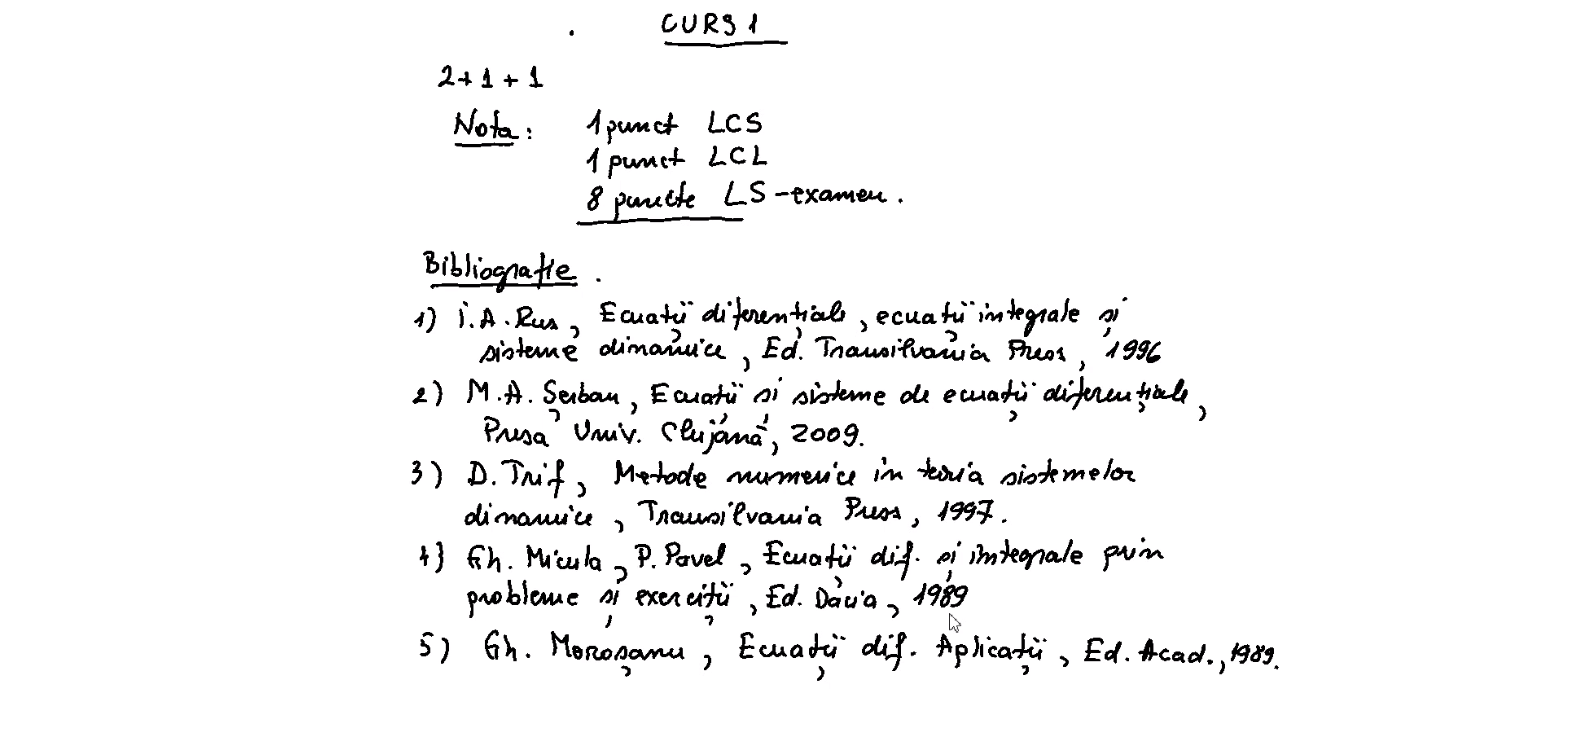 CURS 1
2+1+1
Nota: 1 punct LCS
1 punct LCL
8 puncte LS-examen.
Bibliografie.
1) I.A. Rus, Ecuații diferențiale, ecuații integrale și
sisteme dinamice, Ed. Transilvania Press, 1996
2) M.A. Șerban, Ecuații și sisteme de ecuații diferențiale,
Presa Univ. Clujană, 2009.
3) D. Trif, Metode numerice în teoria sistemelor
dinamice, Transilvania Press, 1997.
4) Gh. Micula, P. Pavel, Ecuații dif. și integrale prin
probleme și exerciții, Ed. Dacia, 1989
5) Gh. Moroșanu, Ecuații dif. Aplicații, Ed. Acad., 1989.